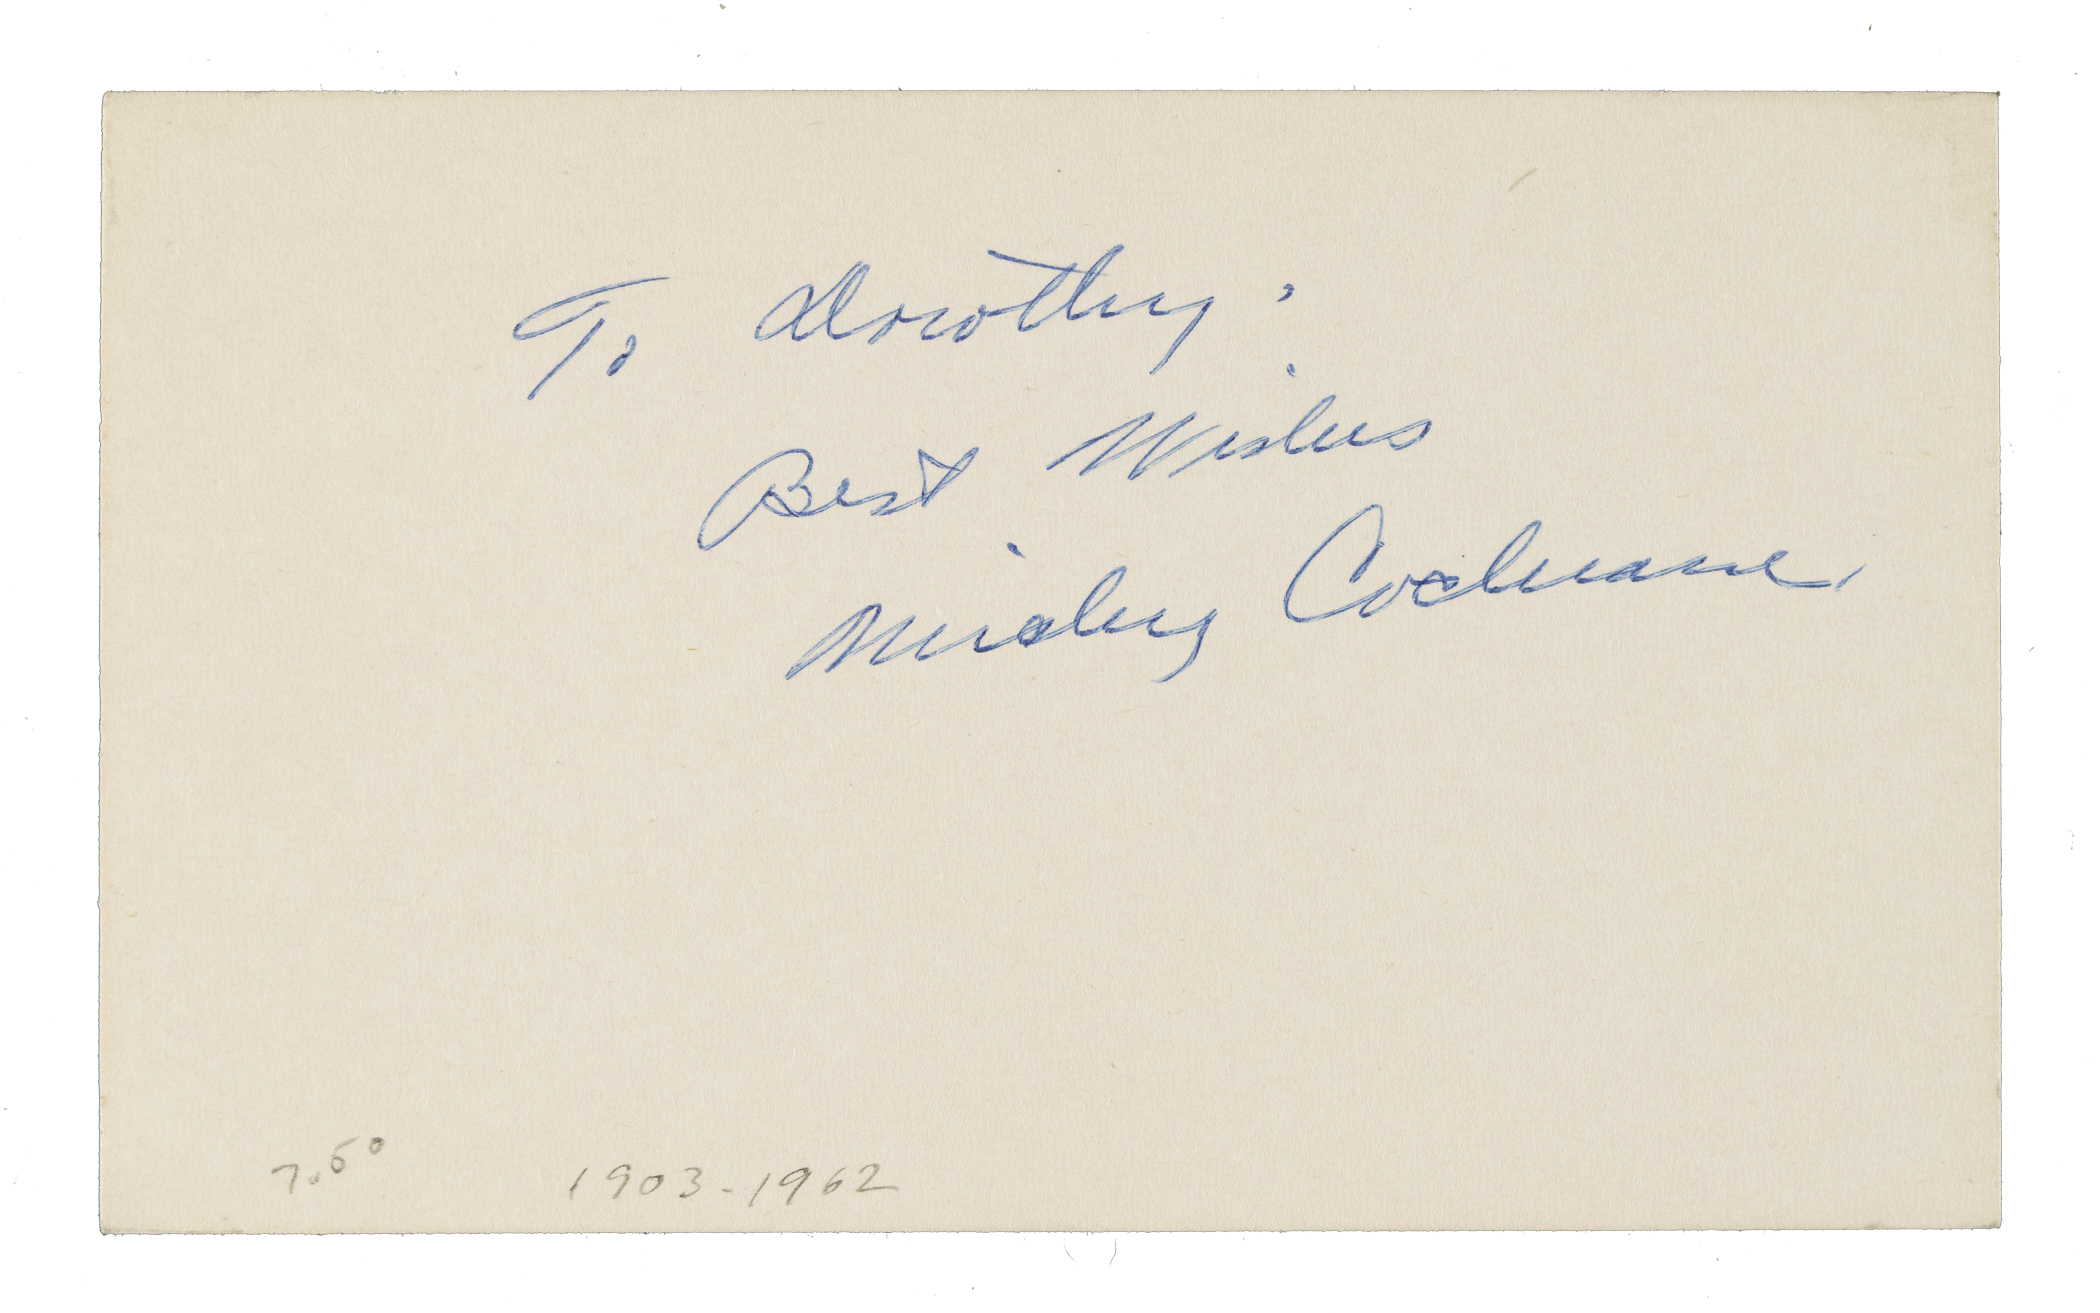 To Dorothy.
Best Wishes
Mickey Cochrane.
7.50 1903-1962